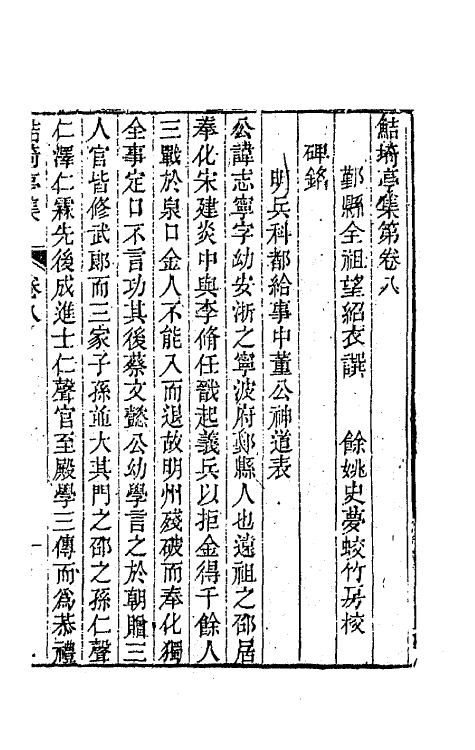 鮚埼亭集第卷八
鄞縣全祖望紹衣譔　餘姚史夢蛟竹房校
碑銘
明兵科都給事中董公神道表
公諱志寧字幼安浙之寧波府鄞縣人也遠祖之邵居
奉化宋建炎中與李脩任戩起義兵以拒金得千餘人
三戰於泉口金人不能入而退故明州殘破而奉化獨
全事定口不言功其後蔡文懿公幼學言之於朝贈三
人官皆修武郎而三家子孫並大其門之邵之孫仁聲
仁澤仁霖先後成進士仁聲官至殿學三傳而爲恭禮
鮚埼亭集　卷八　一